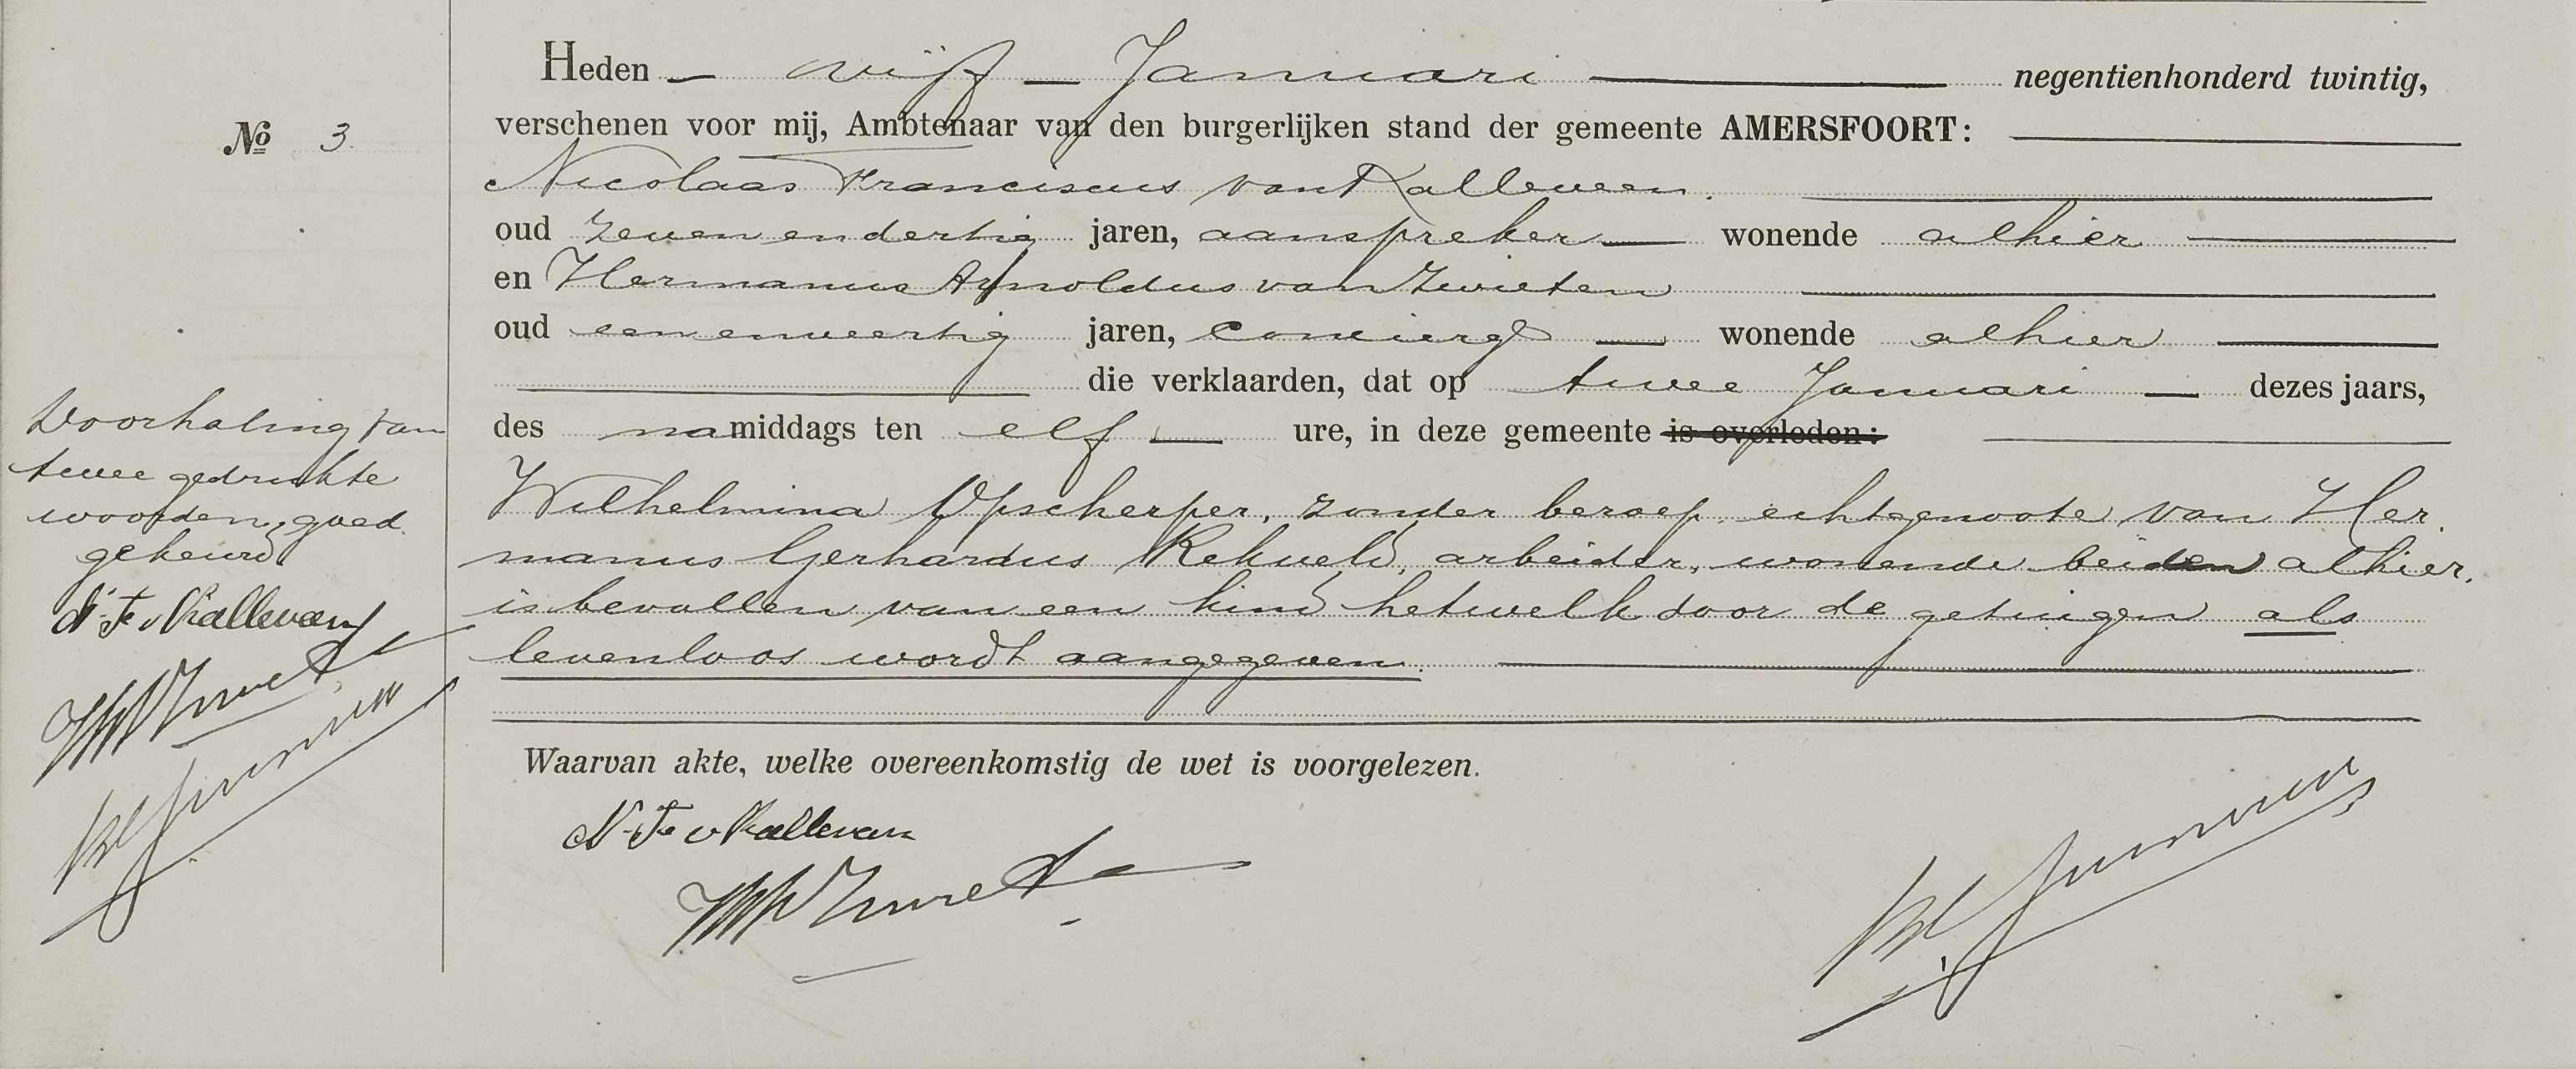 Heden vijf Januari negentienhonderd twintig,
verschenen voor mij, Ambtenaar van den burgerlijken stand der gemeente AMERSFOORT:
No 3.
Nicolaas Franciscus van Kalleveen.
oud zeven en dertig jaren, aanspreker wonende alhier
en Hermanus Arnoldus van Zwieten
oud eenenveertig jaren, concierge wonende alhier
die verklaarden, dat op twee Januari dezes jaars,
des namiddags ten elf ure, in deze gemeente is overleden:
Wilhelmina Opscherper, zonder beroep, echtgenoote van Her
manus Gerhardus Rekveld, arbeider, wonende beiden alhier,
is bevallen van een kind hetwelk door de getuigen als
levenloos wordt aangegeven.
Doorhaling van
twee gedrukte
woorden, goed
gekeurd
N. F. v Kalleveen
Waarvan akte, welke overeenkomstig de wet is voorgelezen.
N. F. v Kalleveen